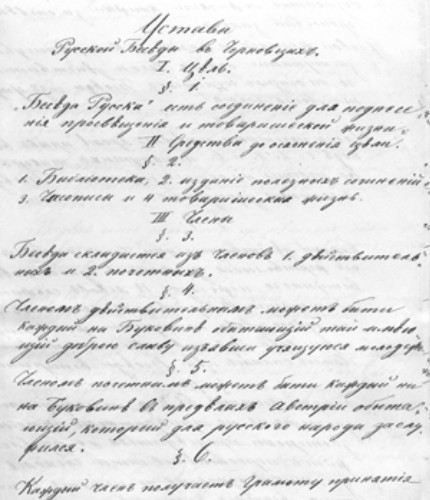 Уставы
Русской Бесѣды въ Черновцахъ.
I. Цѣль.
§ 1.
„Бесѣда Руска" есть соединеніе для поднесе
нія просвѣщенія и товаришеской жизни.
II Средства до осягненія цѣли.
§. 2.
1. Библіотека, 2. изданіе полезныхъ сочиненій
3. Часописи и 4 товаришеская жизнь.
III Члены
§. 3.
Бесѣда складается изъ членовъ 1. дѣйствитель
ныхъ и 2. почетныхъ.
§. 4.
Членомъ дѣйствительнымъ можетъ бути
каждый на Буковинѣ обитающій
щій доброю славу изъявши учащуюся молодежь
§. 5.
Членомъ почетнымъ можетъ бути каждый
на Буковинѣ въ предѣлахъ Австріи обита
ющій, который для русского народа заслу
жился.
§. 6.
Каждый членъ получаетъ грамоту принятія